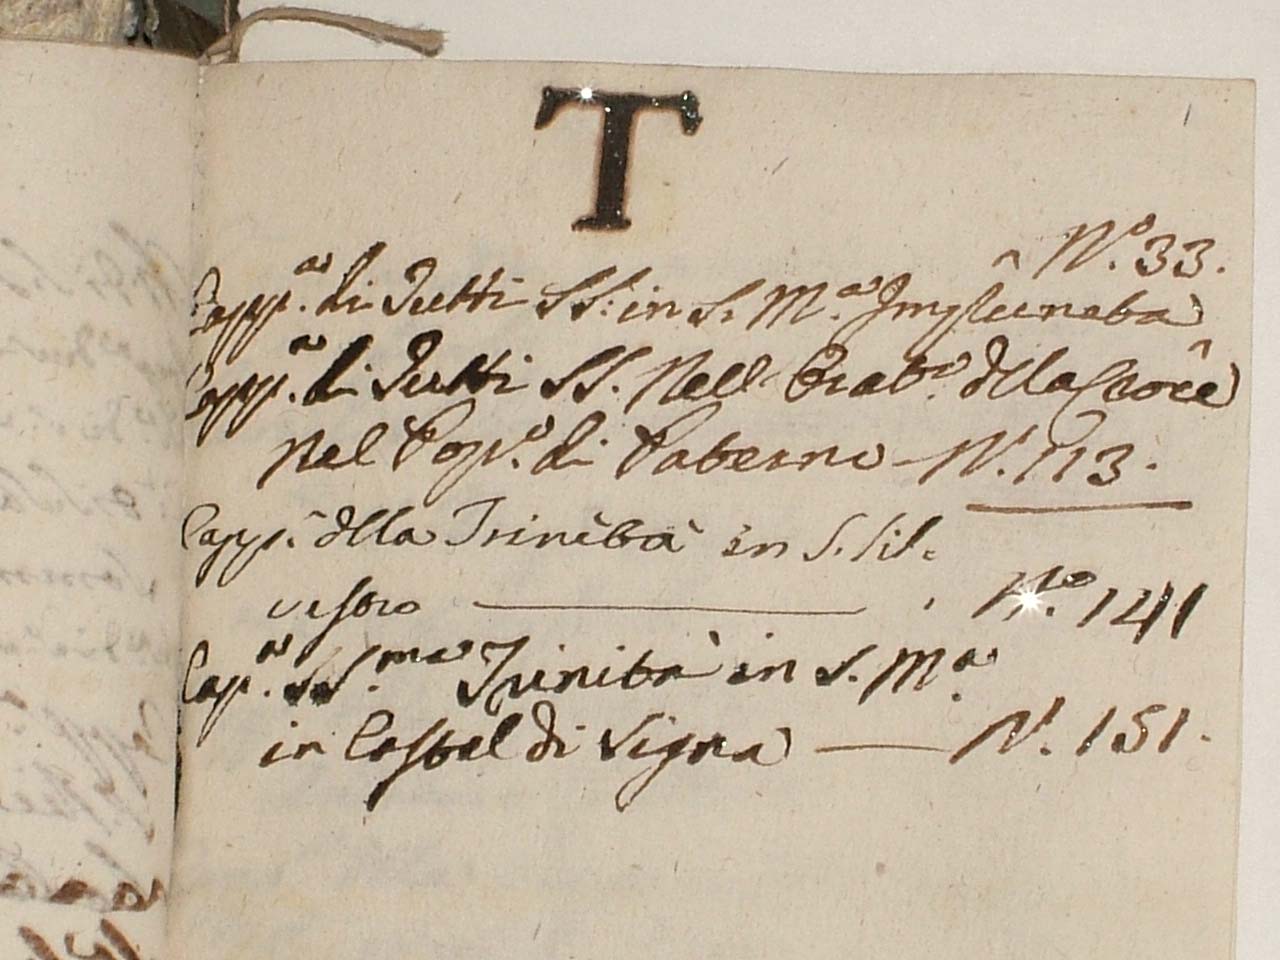 T
N.° 33.
Capp.ª di Tutti SS: in S. M.ª Impruneta
Capp.ª di Tutti SS. Nell Orat.° della Croce
Nel Pop.° di Paterno N.° 113.
Capp.ª della Trinità in S. Sil-
vestro N.° 141
Cap.ª SS.ma Trinità in S. M.ª
in Castel di Signa N.° 151.